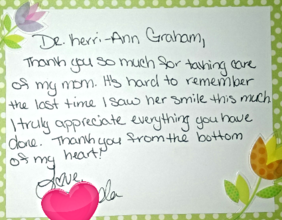 De. Kerri-Ann Graham,
Thank you so much for taking care
of my mom. It's hard to remember
the last time I saw her smile this much
I truly appreciate everything you have
done. Thank you from the bottom
of my heart!
Love,